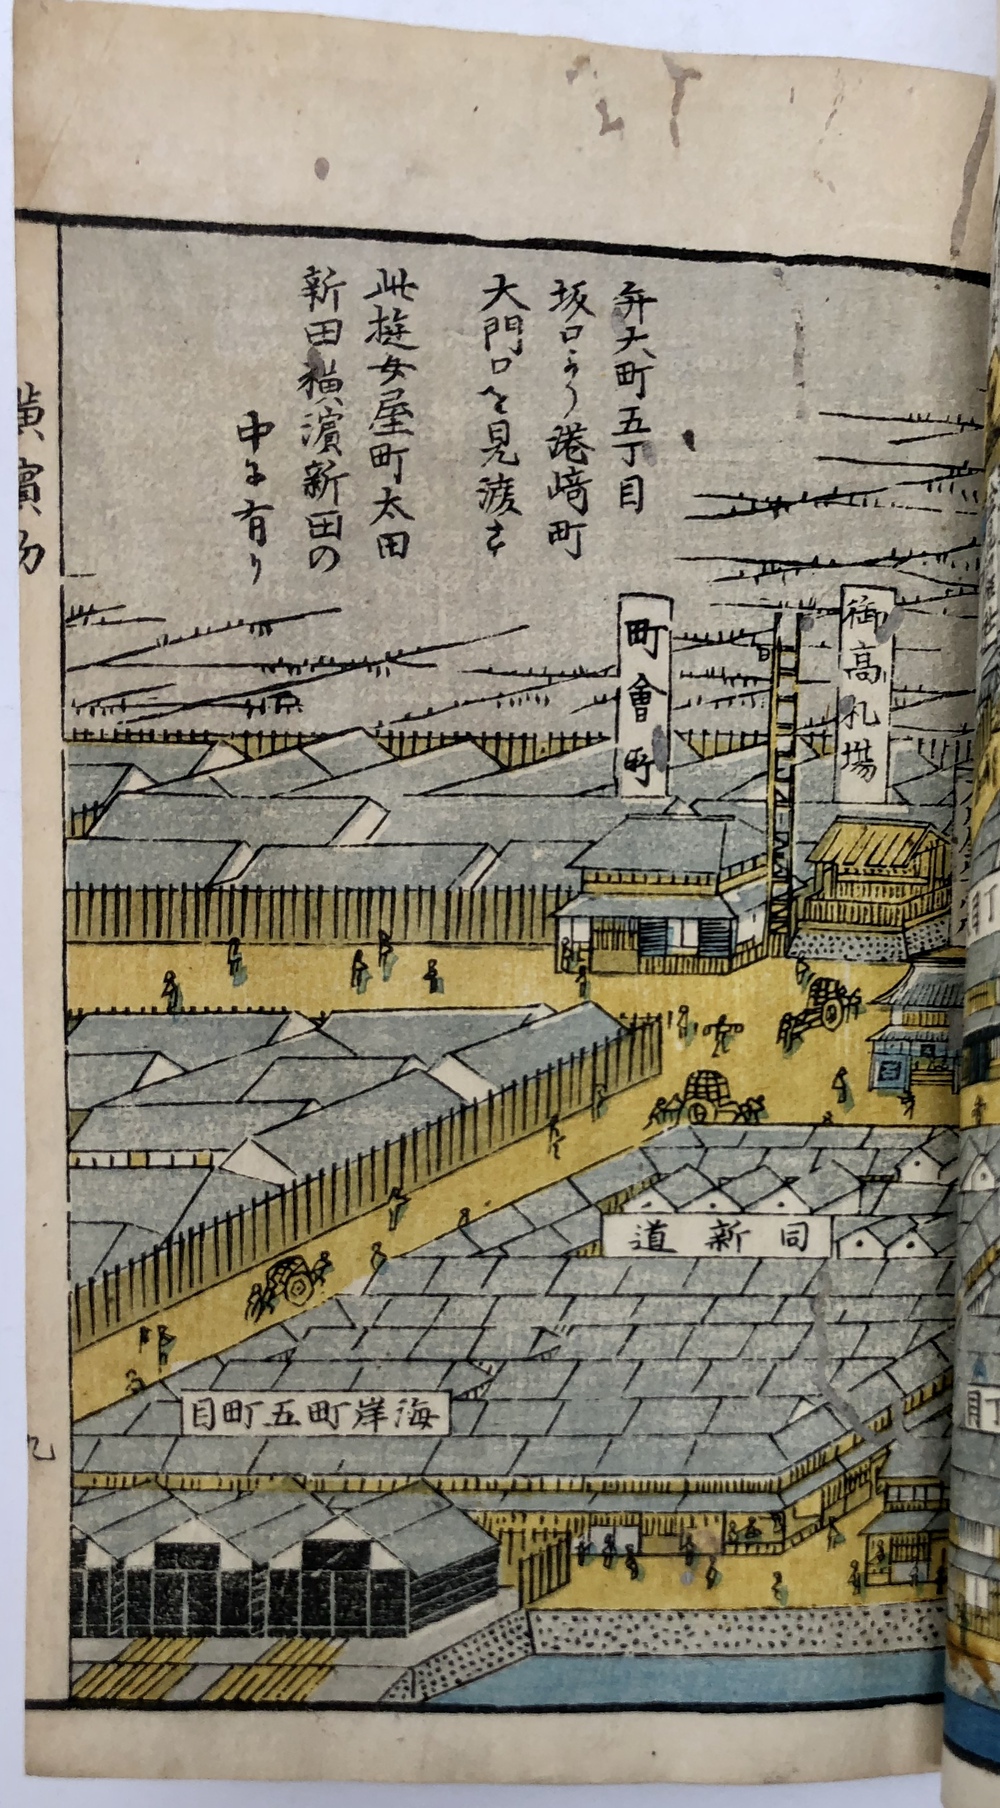 弁天町五丁目
坂口より港﨑町
大門口を見渡す
此遊女屋町太田
新田横濱新田の
中に有り
御高札場
町會町
同新道
海岸町五町目
横濱
九